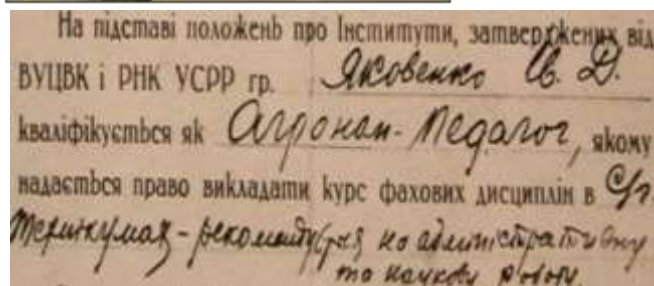 На підставі положень про Інститути, затвержених від
ВУЦВК і РНК УСРР гр. Яковенко Є. Д.
кваліфікується як Агроном-Педагог, якому
надається право викладати курс фахових дисциплін в С/г.
Технікумах - рекомендується на адміністративну
та наукову роботу.